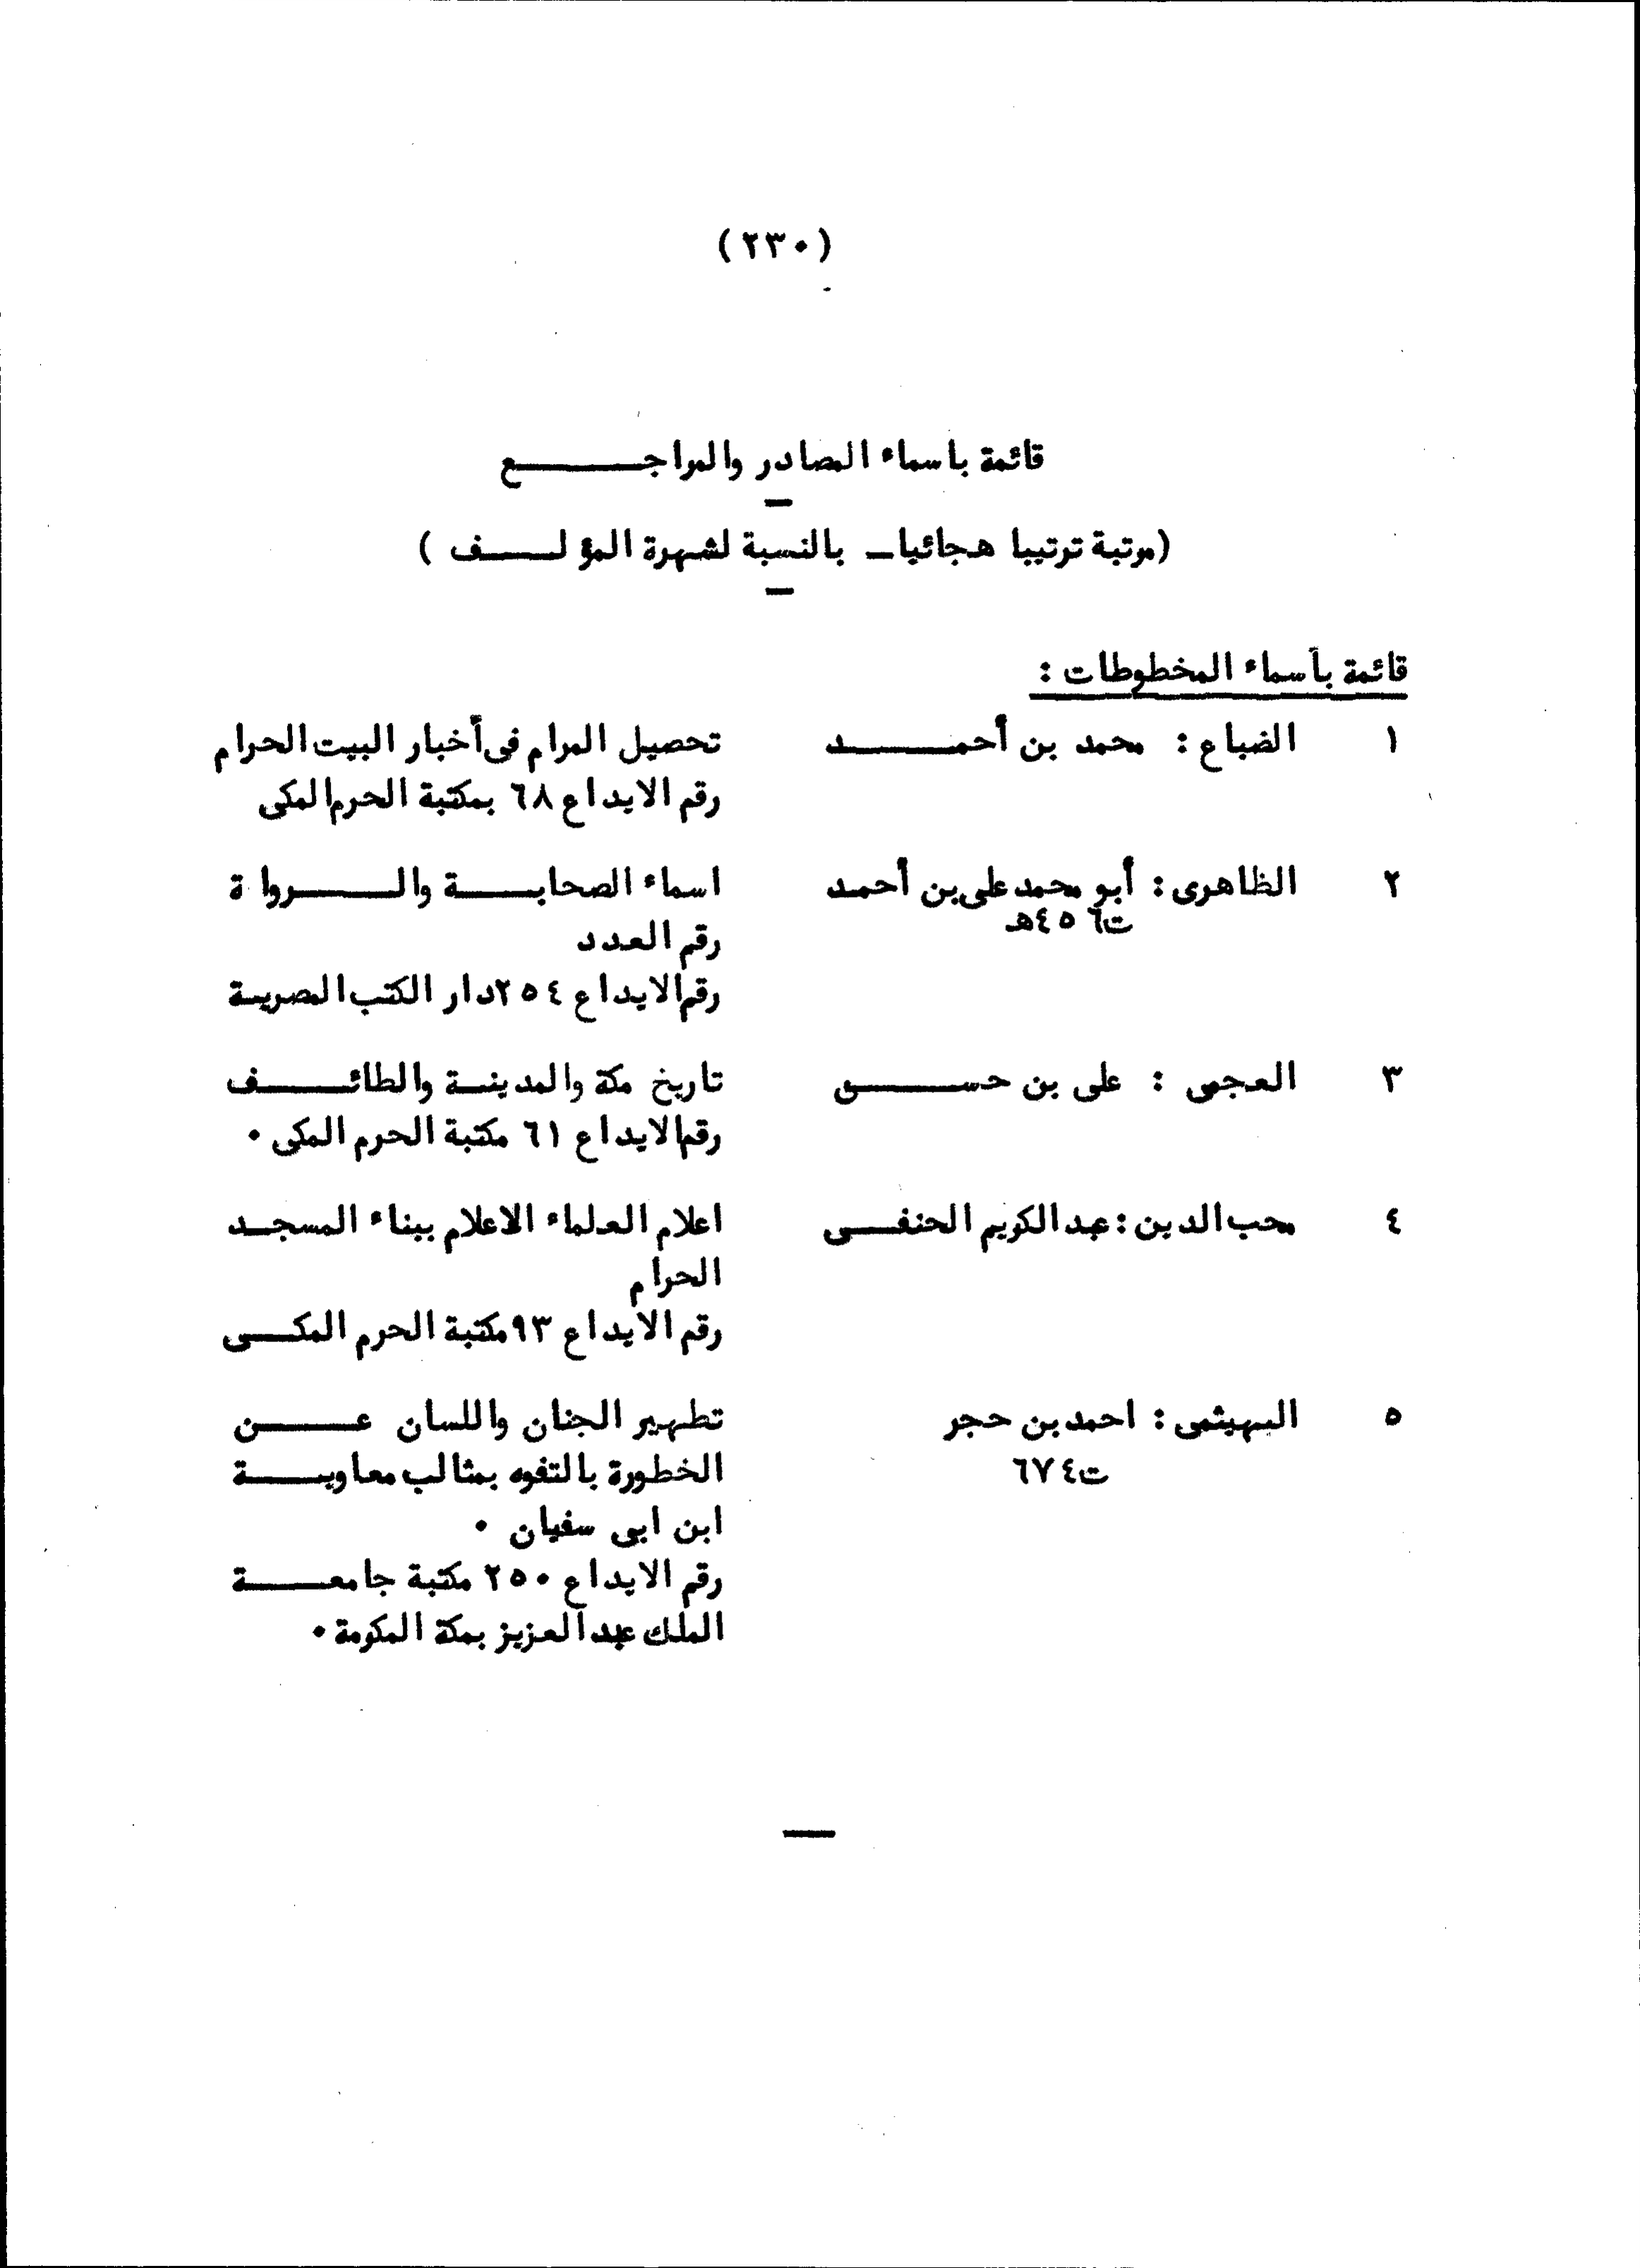 (٢٣٠)
قائمة باسماء المصادر والمراجع
(مرتبة ترتيبا هجائيا - بالنسبة لشهرة المؤلف )
قائمة بأسماء المخطوطات :
١ الضباع : محمد بن أحمد تحصيل المرام فى أخبار البيت الحرام
رقم الايداع ٦٨ بمكتبة الحرم المكى
٢ الظاهرى : أبو محمد على بن أحمد اسماء الصحابة والرواة
ت٤٥٦هـ
رقم العدد
رقم الايداع ٢٥٤ دار الكتب المصرية
٣ العجمى : على بن حسن تاريخ مكة والمدينة والطائف
رقم الايداع ٦١ مكتبة الحرم المكى .
٤ محب الدين : عبد الكريم الحنفى اعلام العلماء الاعلام ببناء المسجد
الحرام
رقم الايداع ٩٣ مكتبة الحرم المكى
٥ الهيثمى : احمد بن حجر تطهير الجنان واللسان عن
ت٦٧٤ الخطورة بالتفوه بمثالب معاوية
ابن ابى سفيان .
رقم الايداع ٢٥٠ مكتبة جامعة
الملك عبد العزيز بمكة المكرمة .